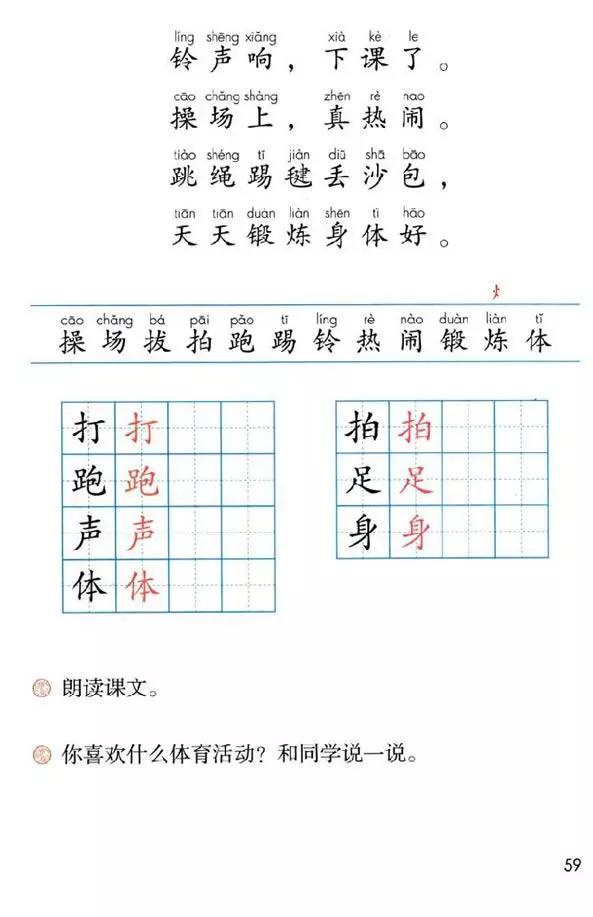 líng shēng xiǎng xià kè le
铃声响，下课了。
cāo chǎng shàng zhēn rè nao
操场上，真热闹。
tiào shéng tī jiàn diū shā bāo
跳绳踢毽丢沙包，
tiān tiān duàn liàn shēn tǐ hǎo
天天锻炼身体好。
火
cāo chǎng bá pāi pǎo tī líng rè nào duàn liàn tǐ
操场拔拍跑踢铃热闹锻炼体
打打 拍拍
跑跑 足足
声声 身身
体体
朗读课文。
你喜欢什么体育活动？和同学说一说。
59